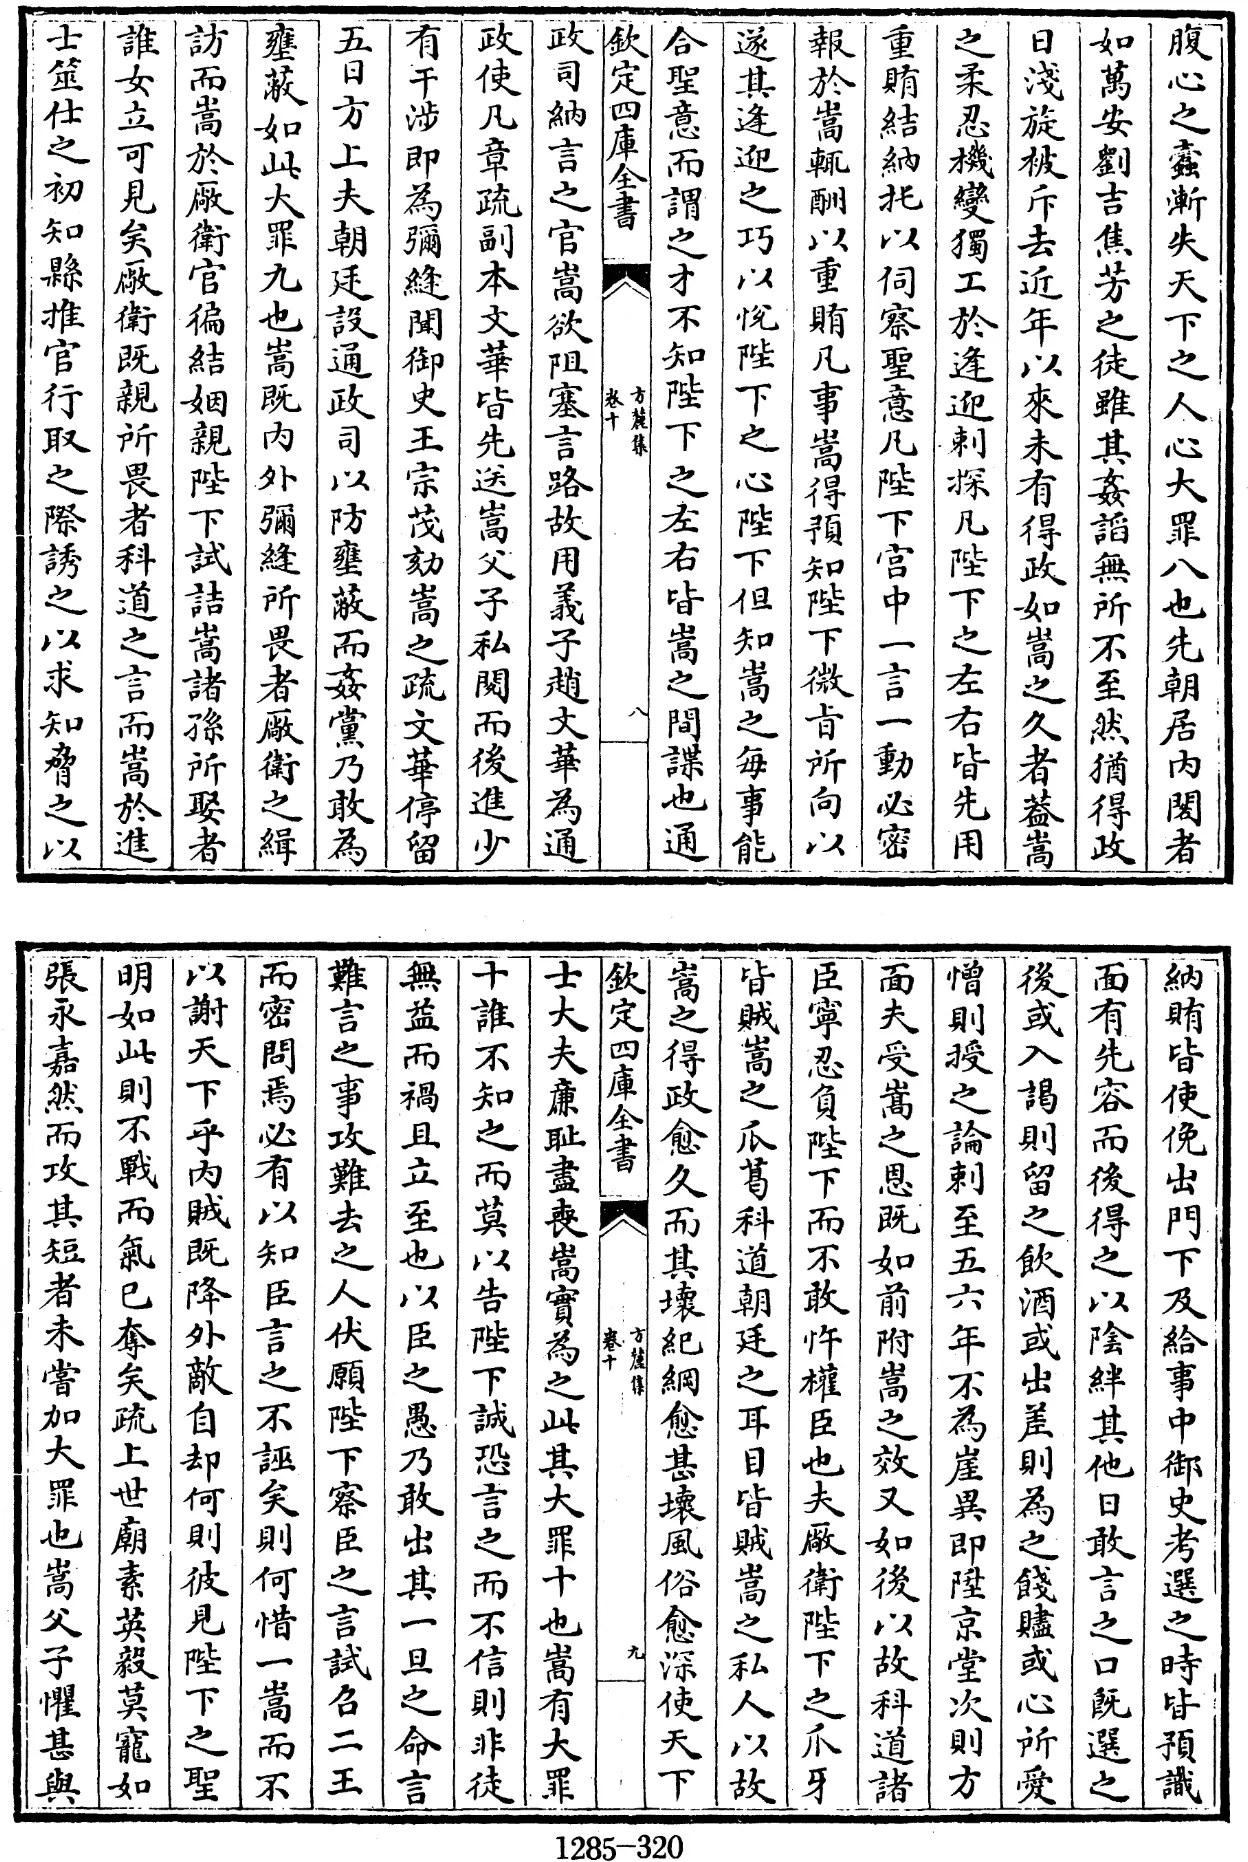 腹心之蠧漸失天下之人心大罪八也先朝居内閣者
如萬安劉吉焦芳之徒雖其姦謟無所不至然猶得政
日淺旋被斥去近年以來未有得政如嵩之久者葢嵩
之柔忍機變獨工於逢迎刺探凡陛下之左右皆先用
重賄結納托以伺察聖意凡陛下宫中一言一動必密
報於嵩輒酬以重賄凡事嵩得預知陛下微㫖所向以
遂其逢迎之巧以悅陛下之心陛下但知嵩之每事能
合聖意而謂之才不知陛下之左右皆嵩之間諜也通
欽定四庫全書
方麓集
卷十
八
政司納言之官嵩欲阻塞言路故用義子趙文華為通
政使凡章疏副本文華皆先送嵩父子私閱而後進少
有干涉即為彌縫聞御史王宗茂劾嵩之疏文華停留
五日方上夫朝廷設通政司以防壅蔽而姦黨乃敢為
壅蔽如此大罪九也嵩既内外彌縫所畏者厰衛之緝
訪而嵩於厰衛官徧結姻親陛下試詰嵩諸孫所娶者
誰女立可見矣厰衛既親所畏者科道之言而嵩於進
士筮仕之初知縣推官行取之際誘之以求知脅之以
納賄皆使俛出門下及給事中御史考選之時皆預識
面有先容而後得之以陰絆其他日敢言之口既選之
後或入謁則留之飲酒或出差則為之餞贐或心所愛
憎則授之論刺至五六年不為崖異即陞京堂次則方
面夫受嵩之恩既如前附嵩之效又如後以故科道諸
臣寧忍負陛下而不敢忤權臣也夫厰衛陛下之爪牙
皆賊嵩之瓜葛科道朝廷之耳目皆賊嵩之私人以故
嵩之得政愈久而其壞紀綱愈甚壞風俗愈深使天下
欽定四庫全書
方麓集
卷十
九
士大夫亷耻盡喪嵩實為之此其大罪十也嵩有大罪
十誰不知之而莫以告陛下誠恐言之而不信則非徒
無益而禍且立至也以臣之愚乃敢出其一旦之命言
難言之事攻難去之人伏願陛下察臣之言試召二王
而密問焉必有以知臣言之不誣矣則何惜一嵩而不
以謝天下乎内賊既降外敵自却何則彼見陛下之聖
明如此則不戰而氣已奪矣疏上世廟素英毅莫寵如
張永嘉然而攻其短者未嘗加大罪也嵩父子懼甚與
1285-320